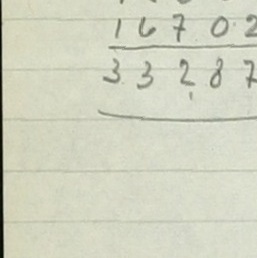 16702
33287